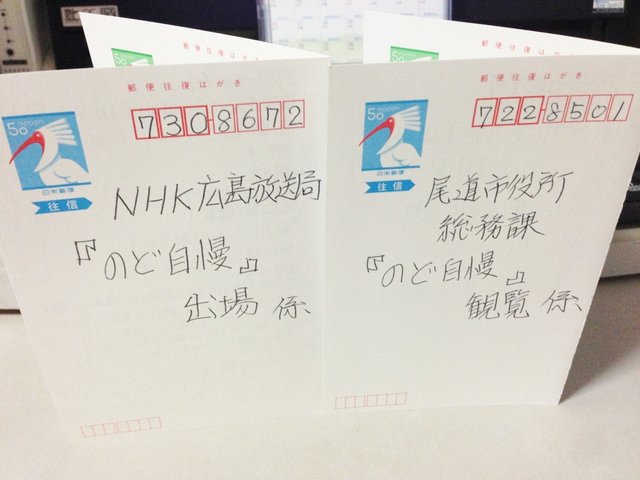 郵便往復はがき
50
nippon
日本郵便
往信
7308672
NHK広島放送局
『のど自慢』
出場 係
50
郵便往復はがき
50
nippon
日本郵便
往信
7228501
尾道市役所
総務課
『のど自慢』
観覧 係
50